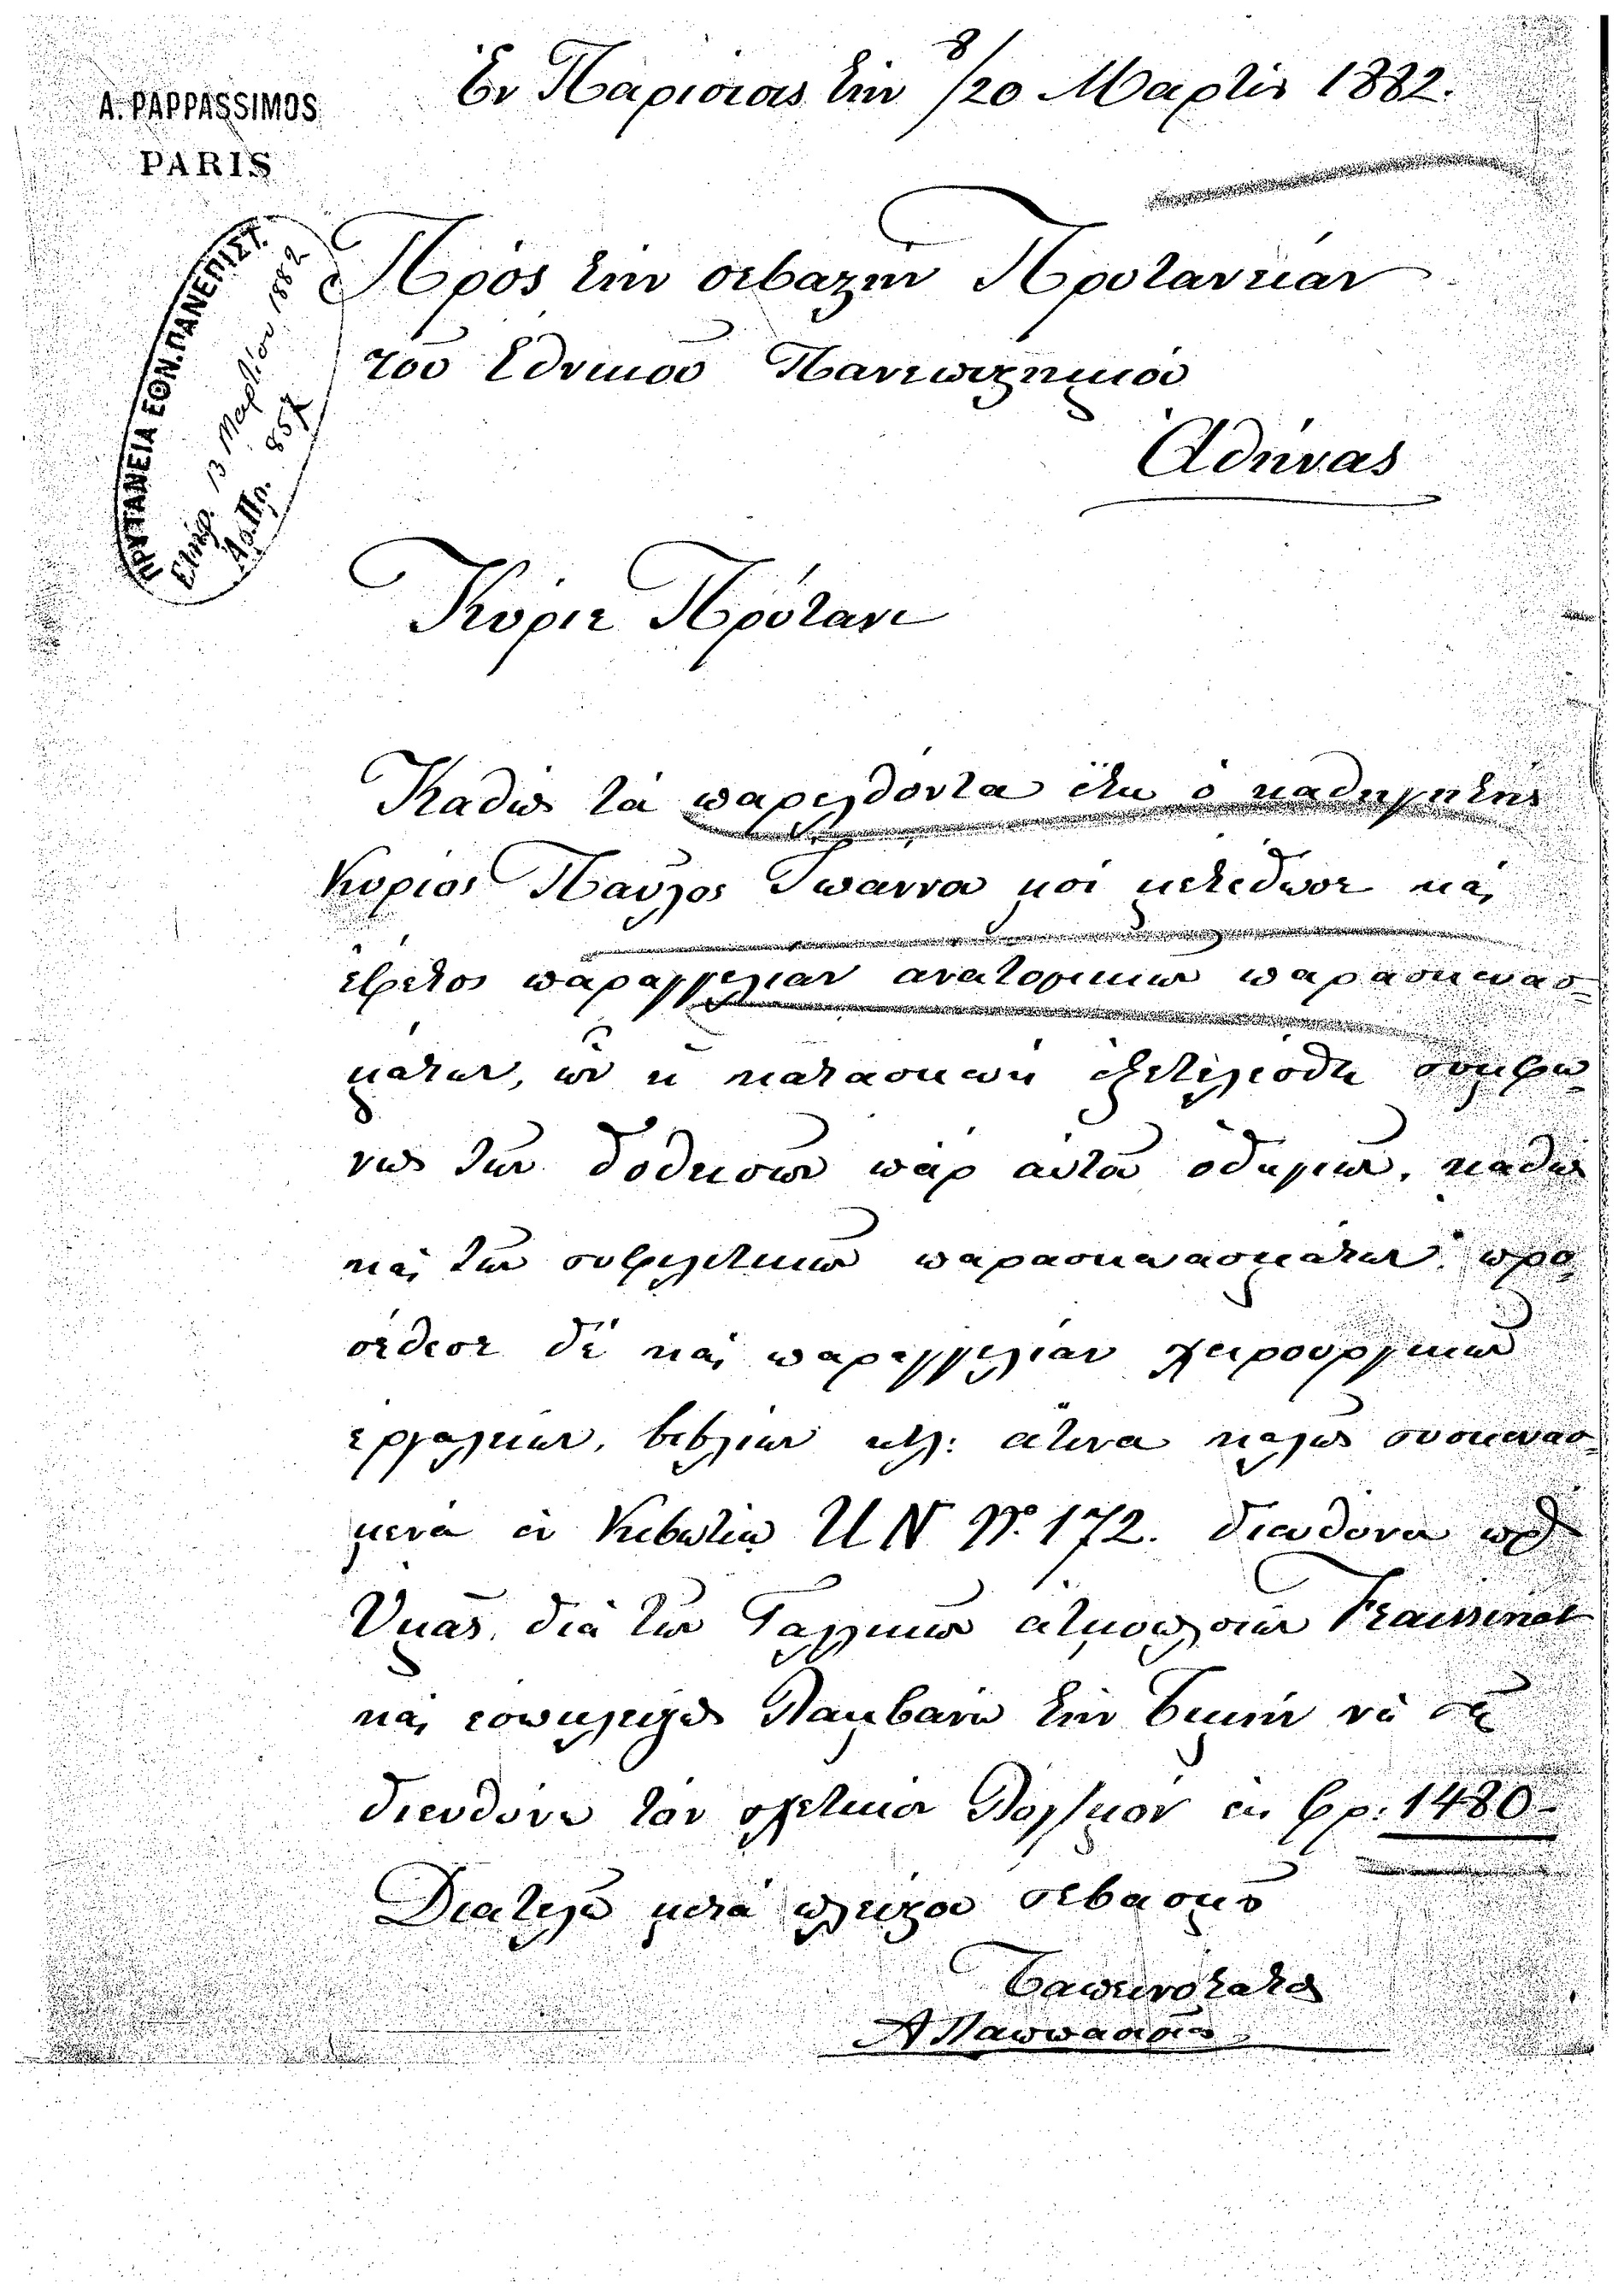 Ἐν Παρισίοις τὴν 8/20 Μαρτίου 1882.
A. PAPPASSIMOS
PARIS
ΠΡΥΤΑΝΕΙΑ ΕΘΝ. ΠΑΝΕΠΙΣΤ.
Ἐλήφ. 13 Μαρτίου 1882
Ἀρ. Πρ. 857
Πρὸς τὴν σεβαστὴν Πρυτανείαν
τοῦ Ἐθνικοῦ Πανεπιστημίου
Ἀθήνας
Κύριε Πρύτανι
Καθὼς τὰ παρελθόντα ἔτη ὁ καθηγητὴς
Κύριος Παῦλος Ἰωάννου μοὶ μετέδωσε καὶ
ἐφέτος παραγγελίαν ἀνατομικῶν παρασκευασ-
μάτων, ὧν ἡ κατασκευὴ ἐξετελέσθη συμφώ-
νως τῶν δοθεισῶν παρ' αὐτοῦ ὁδηγιῶν, καθὼς
καὶ τῶν συφιλιτικῶν παρασκευασμάτων, προ-
σέθεσε δὲ καὶ παραγγελίαν χειρουργικῶν
ἐργαλείων, βιβλίων κτλ: ἅτινα καλῶς συσκευασ-
μένα ἐν κιβωτίῳ U N Nº. 172. διευθύνω πρὸς
Ὑμᾶς, διὰ τῶν Γαλλικῶν ἀτμοπλοίων Fraissinet
καὶ ἐσωκλείστως Λαμβάνω τὴν τιμὴν νὰ σᾶς
διευθύνω τὸν σχετικὸν Λογ/σμὸν ἐκ φρ: 1480-
Διατελῶ μετὰ πλείστου σεβασμοῦ
Ταπεινότατος
Α Παππάσιμος